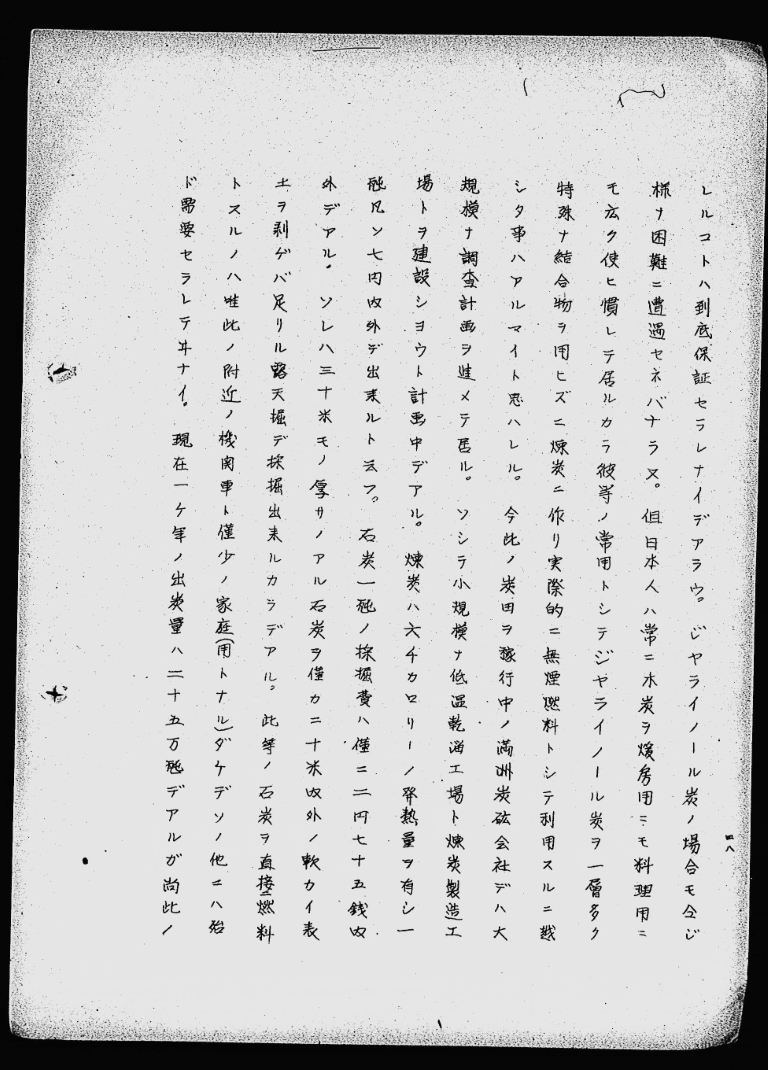 レルコトハ到底保証セラレナイデアラウ。ジヤライノール炭ノ場合モ仝ジ
様ナ困難ニ遭遇セネバナラヌ。但日本人ハ常ニ木炭ヲ煖房用ニモ料理用ニ
モ広ク使ヒ慣レテ居ルカラ彼等ノ常用トシテジヤライノール炭ヲ一層多ク
特殊ナ結合物ヲ用ヒズニ煉炭ニ作リ実際的ニ無煙燃料トシテ利用スルニ
シタ事ハアルマイト思ハレル。今此ノ炭田ヲ稼行中ノ満洲炭砿会社デハ大
規模ナ調査計画ヲ進メテ居ル。ソシテ小規模ナ低温乾溜工場ト煉炭製造工
場トヲ建設シヨウト計画中デアル。煉炭ハ六チカロリーノ発熱量ヲ有シ一
瓲凡ソ七円内外デ出来ルト云フ。石炭一瓲ノ採掘費ハ僅ニ二円七十五銭内
外デアル。ソレハ三十米モノ厚サノアル石炭ヲ僅カニ十米内外ノ軟カイ表
土ヲ剥ゲバ足リル露天掘デ採掘出来ルカラデアル。此等ノ石炭ヲ直接ニ燃料
トスルノハ唯此ノ附近ノ機関車ト僅少ノ家庭(用トナル)ダケデソノ他ニハ殆
ド需要セラレテヰナイ。現在一ケ年ノ出炭量ハ二十五万瓲デアルガ尚此ノ